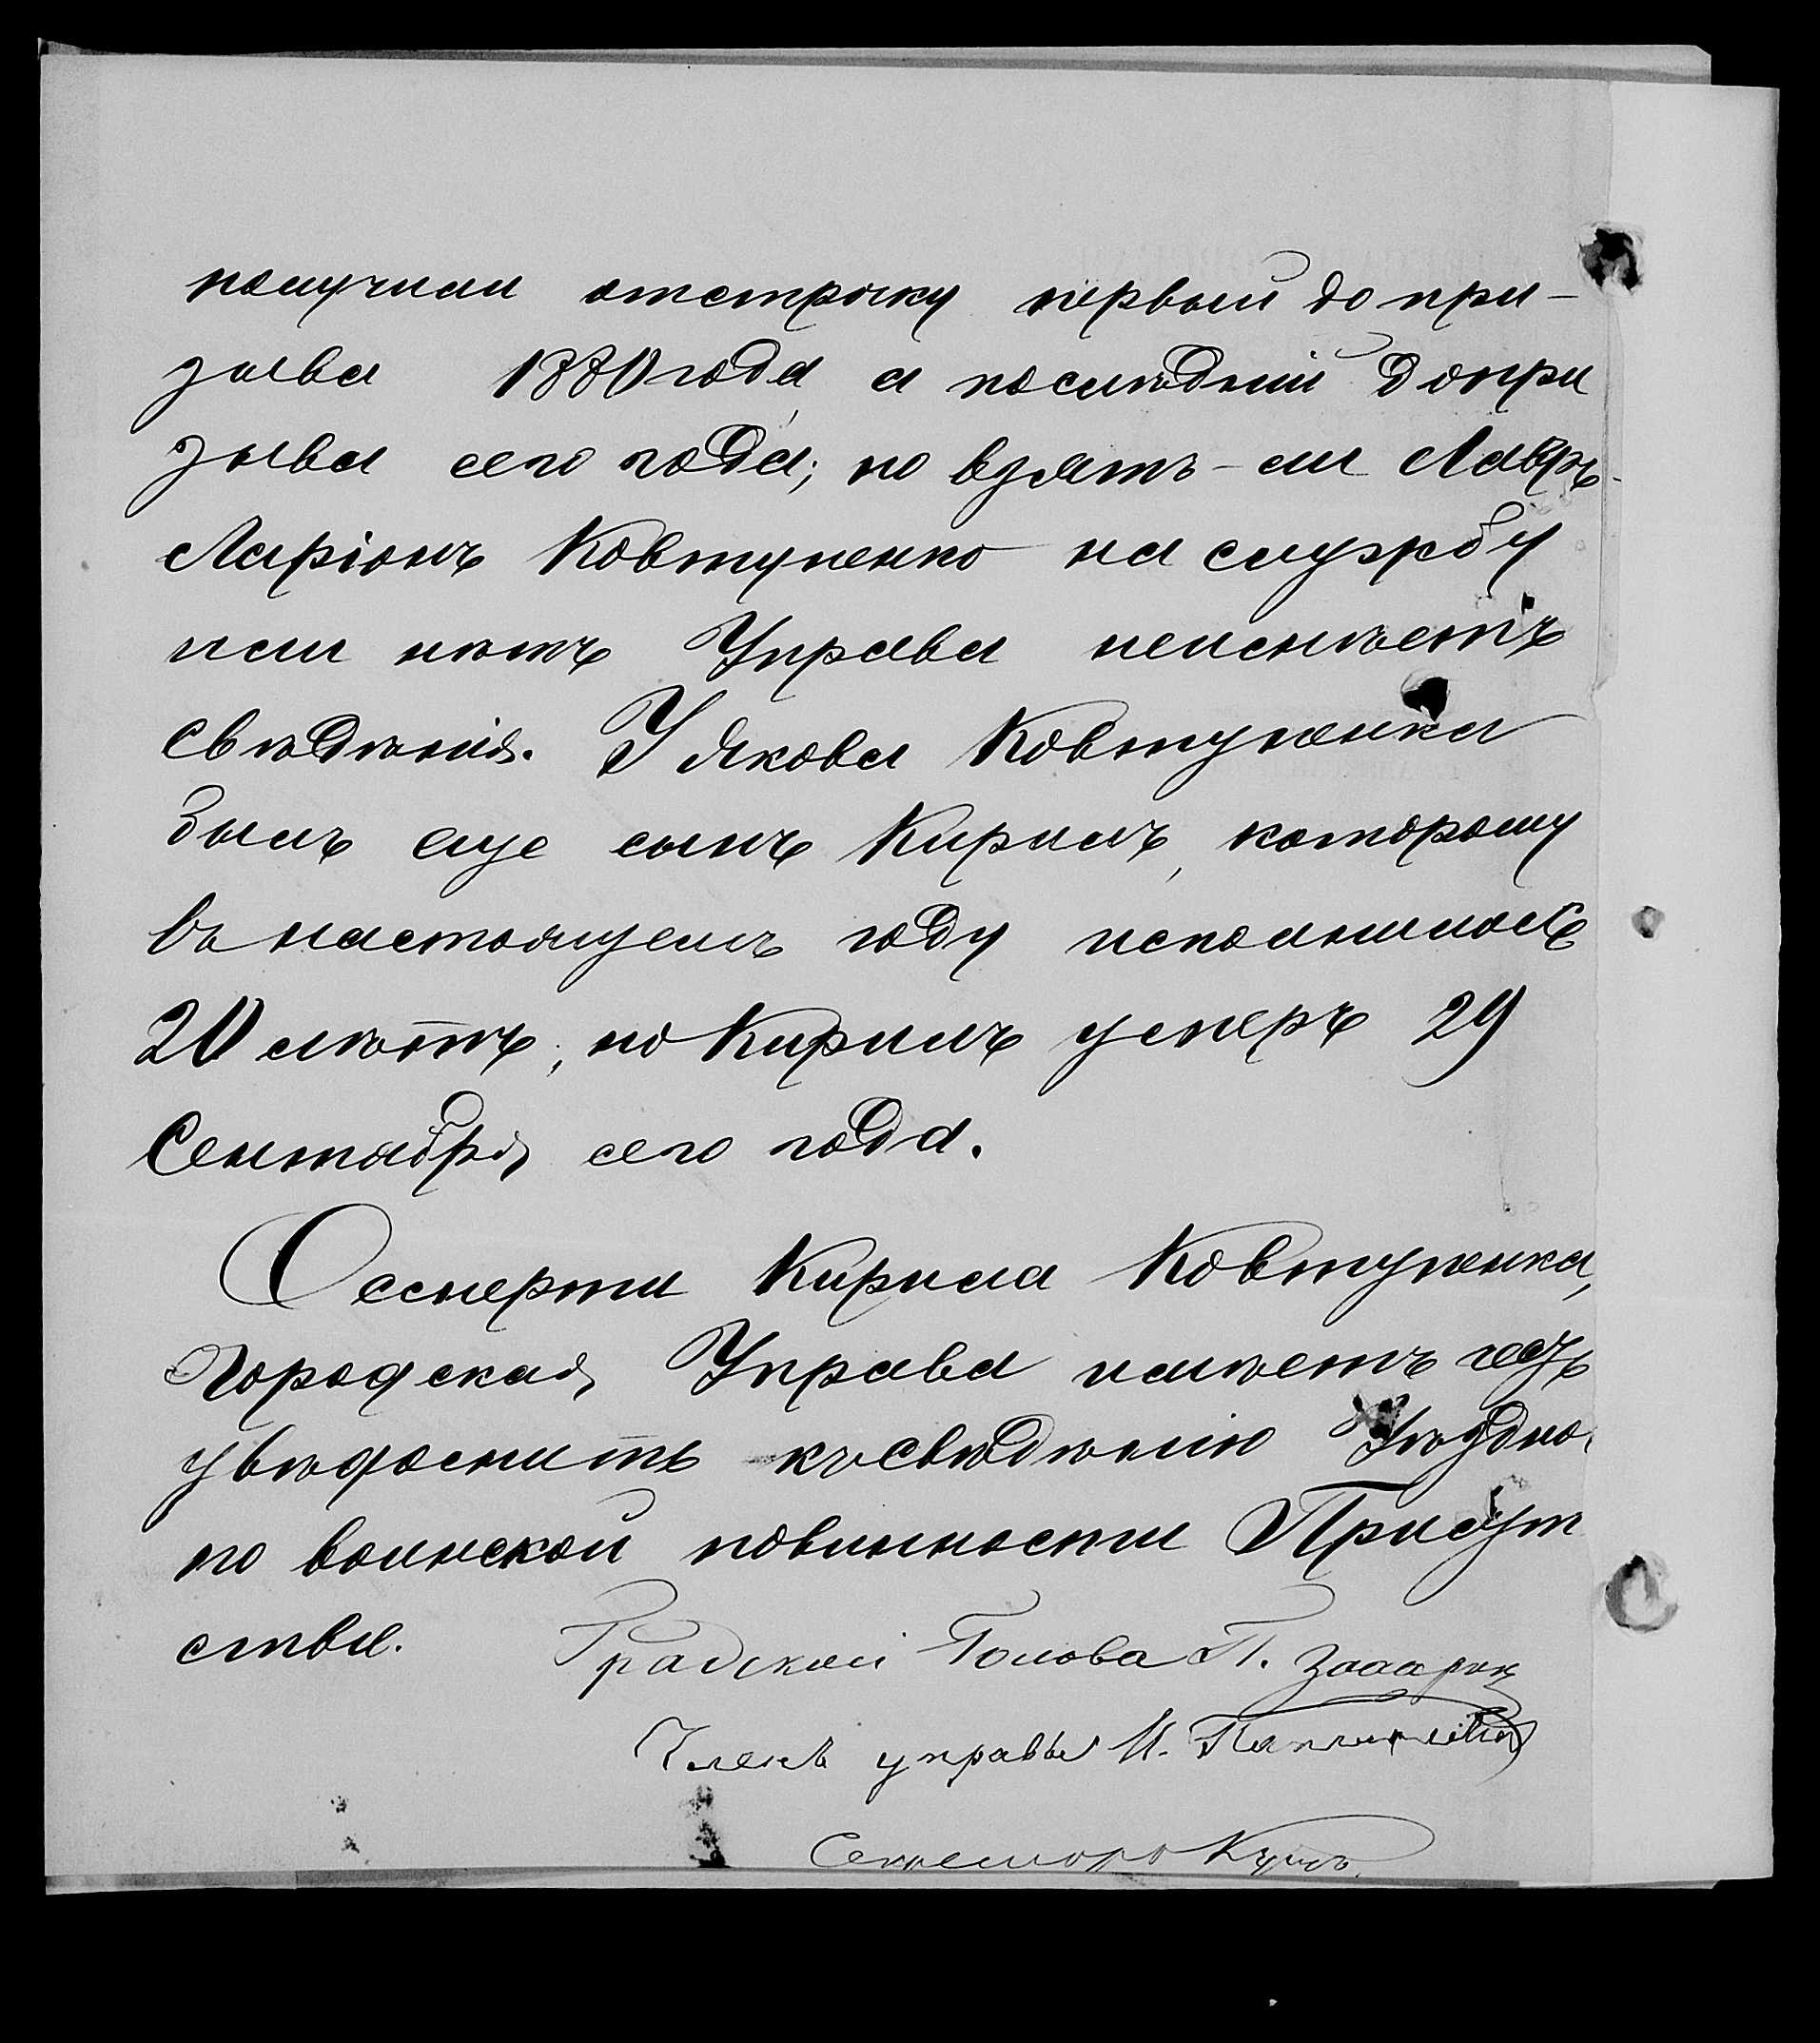 получили отстрочку первый до при-
зыва 1880 года, а последній до при
зыва сего года; но взятъ-ли Лавръ-
Ларіонъ Ковтуненко на службу
или нѣтъ Управа неимѣетъ
свѣдѣнія. У Якова Ковтуненка
былъ еще сынъ Кирилъ, которому
въ настоящемъ году исполнилось
20 лѣтъ, но Кирилъ умеръ 29
Сентября сего года.
О смерти Кирила Ковтуненка,
Городская Управа имѣетъ честь
увѣдомить къ свѣдѣнію Уѣздно
по воинской повинности Присут
ствіе.
Градской Голова П.
Членъ управы И.
Секретарь